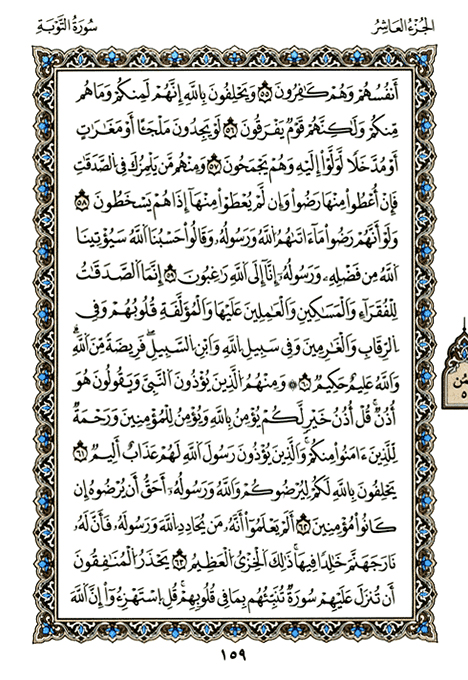 الجزء العاشر
سورة التوبة
أَنفُسُهُمْ وَهُمْ كَافِرُونَ ٥٥ وَيَحْلِفُونَ بِاللَّهِ إِنَّهُمْ لَمِنكُمْ وَمَا هُم
مِّنكُمْ وَلَٰكِنَّهُمْ قَوْمٌ يَفْرَقُونَ ٥٦ لَوْ يَجِدُونَ مَلْجَئًا أَوْ مَغَٰرَٰتٍ
أَوْ مُدَّخَلًا لَّوَلَّوْا۟ إِلَيْهِ وَهُمْ يَجْمَحُونَ ٥٧ وَمِنْهُم مَّن يَلْمِزُكَ فِي الصَّدَقَٰتِ
فَإِنْ أُعْطُوا۟ مِنْهَا رَضُوا۟ وَإِن لَّمْ يُعْطَوْا۟ مِنْهَا إِذَا هُمْ يَسْخَطُونَ ٥٨
وَلَوْ أَنَّهُمْ رَضُوا۟ مَا ءَاتَىٰهُمُ اللَّهُ وَرَسُولُهُۥ وَقَالُوا۟ حَسْبُنَا اللَّهُ سَيُؤْتِينَا
اللَّهُ مِن فَضْلِهِۦ وَرَسُولُهُۥ إِنَّا إِلَى اللَّهِ رَٰغِبُونَ ٥٩ إِنَّمَا الصَّدَقَٰتُ
لِلْفُقَرَاءِ وَالْمَسَٰكِينِ وَالْعَٰمِلِينَ عَلَيْهَا وَالْمُؤَلَّفَةِ قُلُوبُهُمْ وَفِي
الرِّقَابِ وَالْغَٰرِمِينَ وَفِي سَبِيلِ اللَّهِ وَابْنِ السَّبِيلِ فَرِيضَةً مِّنَ اللَّهِ
وَاللَّهُ عَلِيمٌ حَكِيمٌ ٦٠ وَمِنْهُمُ الَّذِينَ يُؤْذُونَ النَّبِيَّ وَيَقُولُونَ هُوَ
أُذُنٌ قُلْ أُذُنُ خَيْرٍ لَّكُمْ يُؤْمِنُ بِاللَّهِ وَيُؤْمِنُ لِلْمُؤْمِنِينَ وَرَحْمَةٌ
لِّلَّذِينَ ءَامَنُوا۟ مِنكُمْ وَالَّذِينَ يُؤْذُونَ رَسُولَ اللَّهِ لَهُمْ عَذَابٌ أَلِيمٌ ٦١
يَحْلِفُونَ بِاللَّهِ لَكُمْ لِيُرْضُوكُمْ وَاللَّهُ وَرَسُولُهُۥ أَحَقُّ أَن يُرْضُوهُ إِن
كَانُوا۟ مُؤْمِنِينَ ٦٢ أَلَمْ يَعْلَمُوا۟ أَنَّهُۥ مَن يُحَادِدِ اللَّهَ وَرَسُولَهُۥ فَأَنَّ لَهُۥ
نَارَ جَهَنَّمَ خَٰلِدًا فِيهَا ذَٰلِكَ الْخِزْيُ الْعَظِيمُ ٦٣ يَحْذَرُ الْمُنَٰفِقُونَ
أَن تُنَزَّلَ عَلَيْهِمْ سُورَةٌ تُنَبِّئُهُم بِمَا فِي قُلُوبِهِمْ قُلِ اسْتَهْزِءُوا۟ إِنَّ اللَّهَ
١٥٩